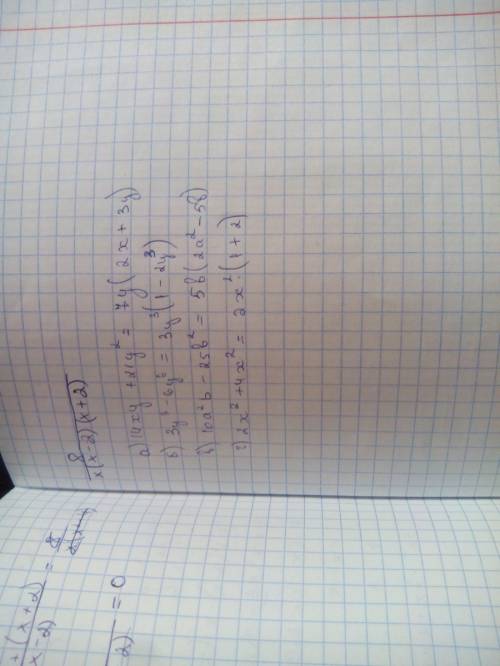 8
x(x-2)(x+2)
а) 14xy + 21y² = 7y(2x + 3y)
б) 3y³ - 6y⁶ = 3y³(1 - 2y³)
в) 10a²b - 25b² = 5b(2a² - 5b)
г) 2x² + 4x² = 2x²·(1 + 2)
+ (x+2)
x-2)
= 8
2)
= 0